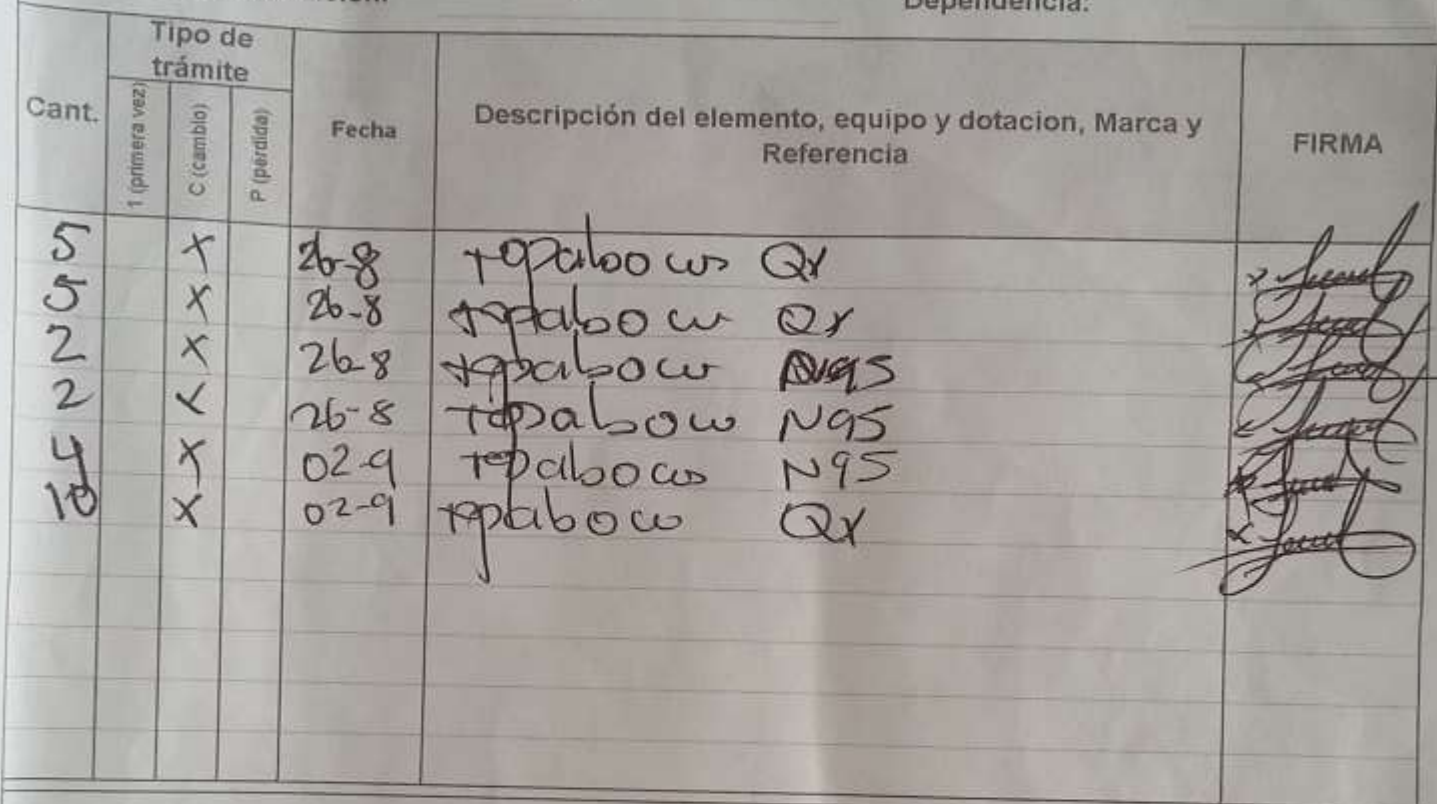 Dependencia:
Cant.
Tipo de trámite
1 (primera vez)
C (cambio)
P (pérdida)
Fecha
Descripción del elemento, equipo y dotacion, Marca y
Referencia
FIRMA
5 X 26-8 tapabocas Qx
5 X 26-8 tapaboca Qx
2 X 26-8 tapaboca N95
2 X 26-8 tapaboca N95
4 X 02-9 tapabocas N95
10 X 02-9 tapaboca Qx